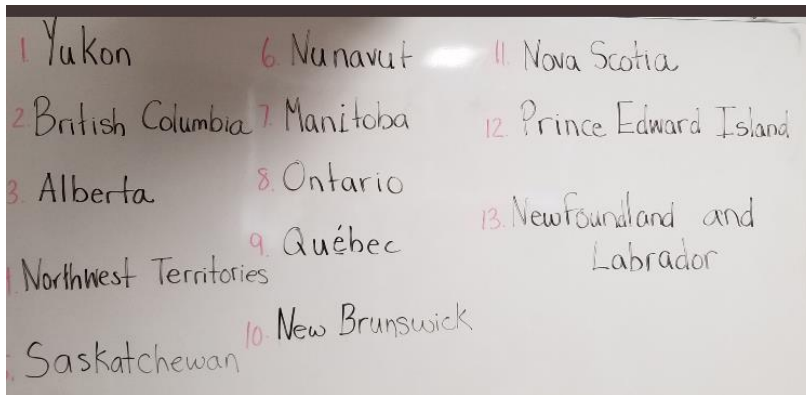 1. Yukon
2. British Columbia
3. Alberta
Northwest Territories
Saskatchewan
6. Nunavut
7. Manitoba
8. Ontario
9. Québec
10. New Brunswick
11. Nova Scotia
12. Prince Edward Island
13. Newfoundland and
Labrador